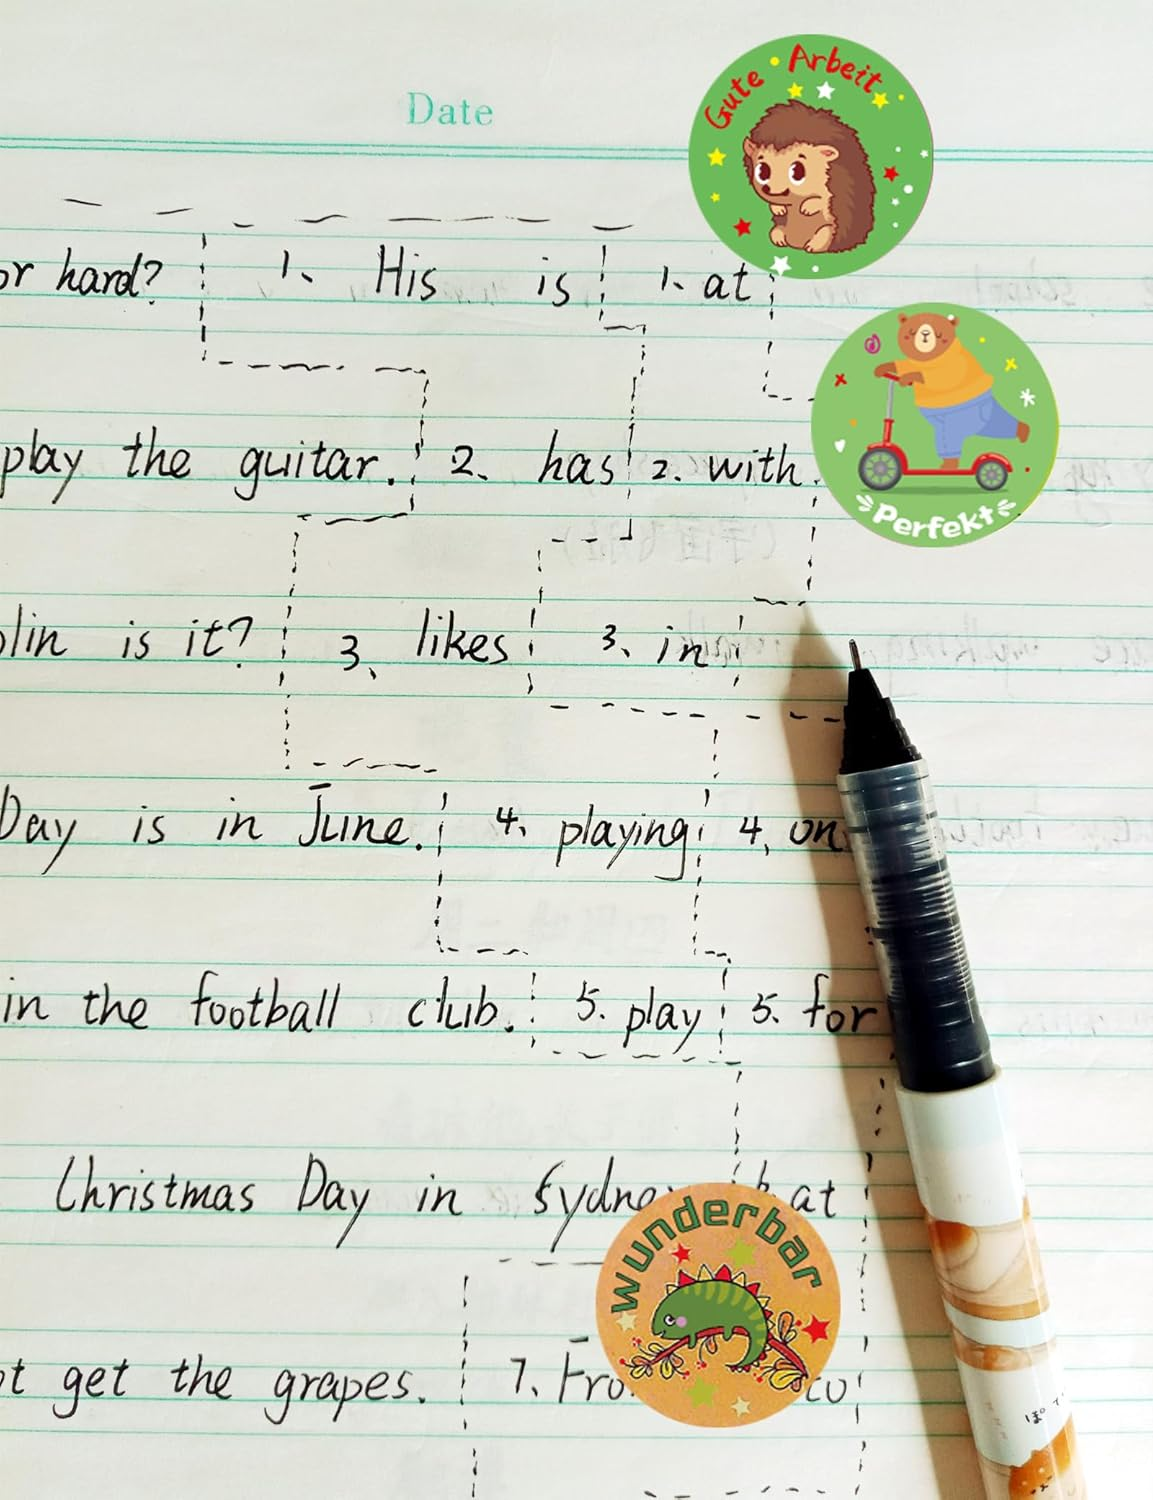 Gute Arbeit
Date
or hard? 1、 His is 1. at
Perfekt
play the guitar. 2、 has 2. with
is it? 3、 likes 3、 in
Day is in June. 4. playing 4. on
in the football club. 5. play 5. for
Christmas Day in at
wunderbar
get the grapes. 7. to